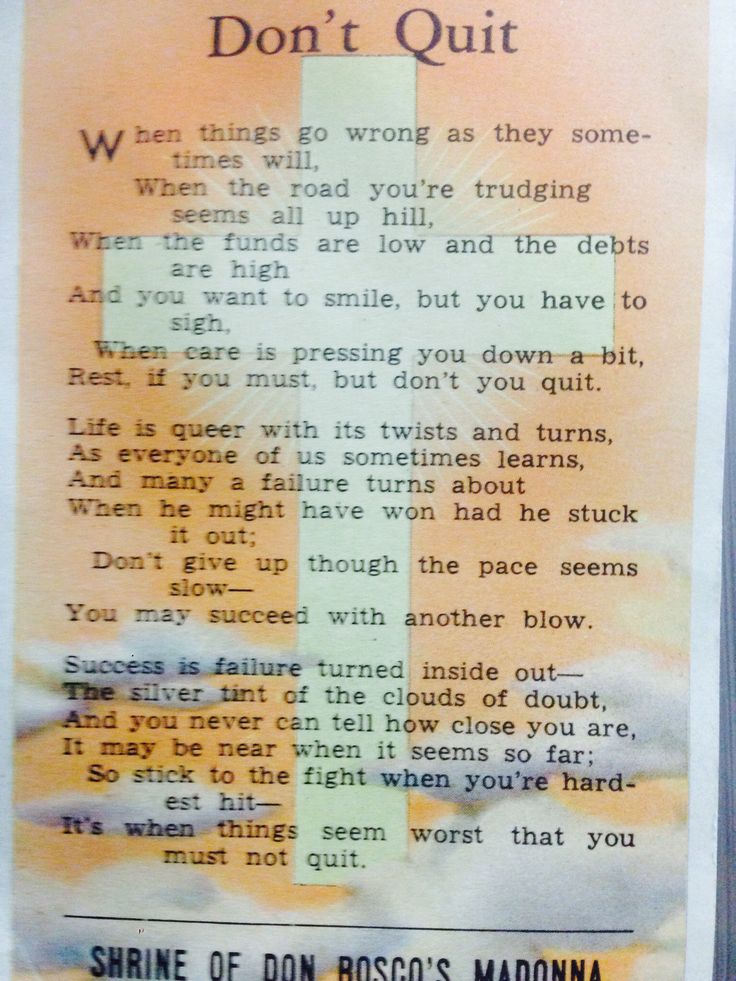 Don't Quit
When things go wrong as they some-
times will,
When the road you're trudging
seems all up hill,
When the funds are low and the debts
are high
And you want to smile, but you have to
sigh,
When care is pressing you down a bit,
Rest, if you must, but don't you quit.
Life is queer with its twists and turns,
As everyone of us sometimes learns,
And many a failure turns about
When he might have won had he stuck
it out;
Don't give up though the pace seems
slow—
You may succeed with another blow.
Success is failure turned inside out—
The silver tint of the clouds of doubt,
And you never can tell how close you are,
It may be near when it seems so far;
So stick to the fight when you're hard-
est hit—
It's when things seem worst that you
must not quit.
SHRINE OF DON BOSCO'S MADONNA